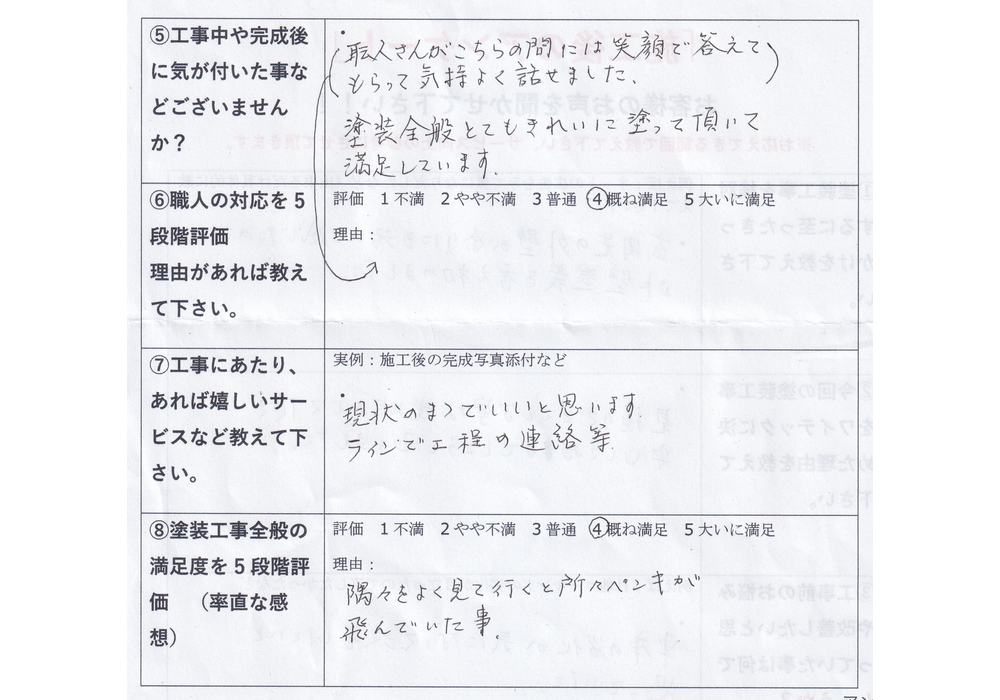 ⑤工事中や完成後
に気が付いた事な
どございません
か？
・職人さんがこちらの問には笑顔で答えて
もらって気持よく話せました。
塗装全般とてもきれいに塗って頂いて
満足しています。
⑥職人の対応を５
段階評価
理由があれば教え
て下さい。
評価　1不満　2やや不満　3普通　④概ね満足　5大いに満足
理由：
⑦工事にあたり、
あれば嬉しいサー
ビスなど教えて下
さい。
実例：施工後の完成写真添付など
・現状のまゝでいいと思います。
ラインで工程の連絡等
⑧塗装工事全般の
満足度を５段階評
価　（率直な感
想）
評価　1不満　2やや不満　3普通　④概ね満足　5大いに満足
理由：
隅々をよく見て行くと所々ペンキが
飛んでいた事。